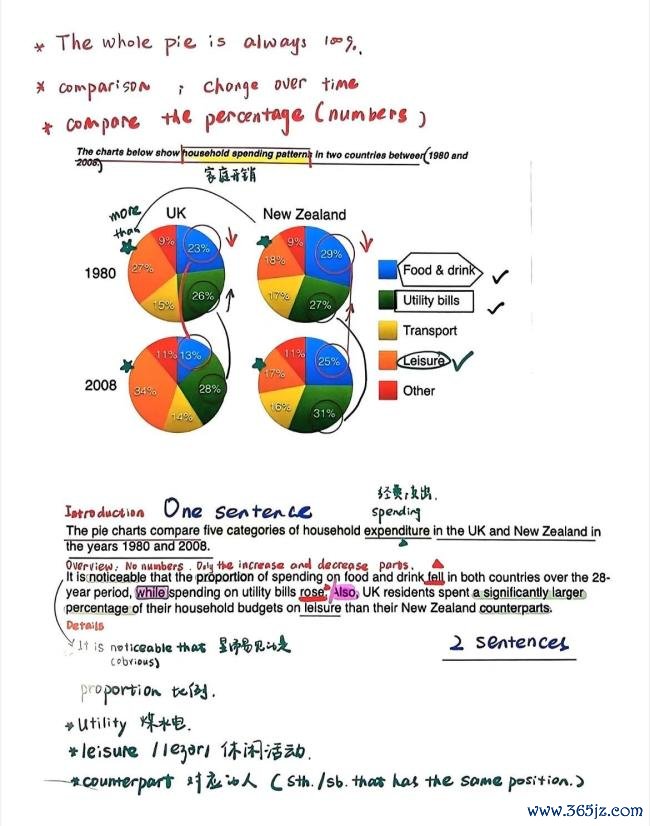 * The whole pie is always 100%.
* comparison ; change over time
* compare the percentage (numbers)
The charts below show household spending patterns in two countries between 1980 and
2008.
家庭开销
more
than
UK
New Zealand
1980
9%
23%
27%
26%
15%
9%
29%
18%
27%
17%
Food & drink
Utility bills
Transport
Leisure
Other
2008
11%
13%
34%
28%
14%
11%
25%
17%
31%
16%
经费,支出.
Introduction One sentence
spending
The pie charts compare five categories of household expenditure in the UK and New Zealand in
the years 1980 and 2008.
Overview: No numbers. Only the increase and decrease parts.
It is noticeable that the proportion of spending on food and drink fell in both countries over the 28-
year period, while spending on utility bills rose. Also, UK residents spent a significantly larger
percentage of their household budgets on leisure than their New Zealand counterparts.
Details
It is noticeable that 显而易见的是
(obvious)
2 sentences
proportion 比例.
*Utility 煤水电.
*leisure /leʒər/ 休闲活动.
*counterpart 对应的人 (sth./sb. that has the same position.)
www.365jz.com